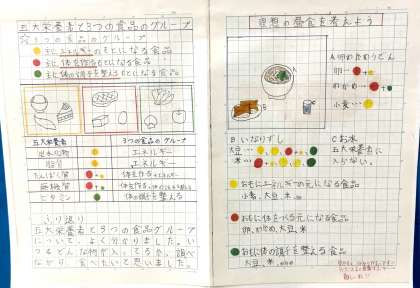 五大栄養者と3つの食品のグループ
☆3つの食品のグループ
主にエネルギーのもとになる食品
主に体を作るもとになる食品
主に体の調子を整えるもとになる食品
五大栄養者
3つの食品のグループ
炭水化物
エネルギー
脂質
エネルギー
たんぱく質
無機質
ビタミン
体の調子を整える
ふり返り
五大栄養者と3つの食品グループ
について、よく分かりました。いつ
もどんな物が入ってるか、調べ
ながら、食べたいと思いました。
理想の昼食を考えよう
A卵わかめうどん
卵…
わかめ…
小麦…
Bいなりずし
大豆…
米…
Cお水
五大栄養者に
入らない。
おもにエネルギーの元になる食品
小麦、大豆、米。
おもに体をつくる元になる食品
卵、わかめ、大豆、米。
おもに体の調子を整える食品
大豆、米、わかめ